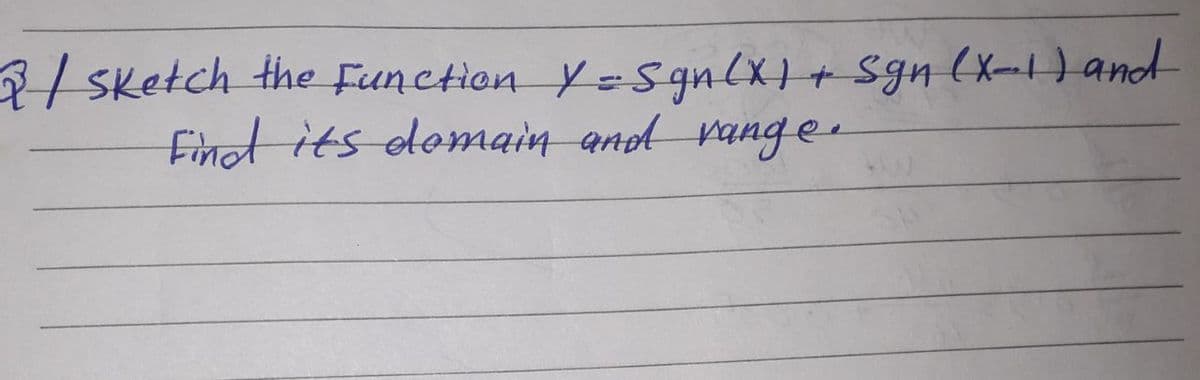 Q/ Sketch the Function y = Sgn(x) + Sgn(x-1) and
Find its domain and range.